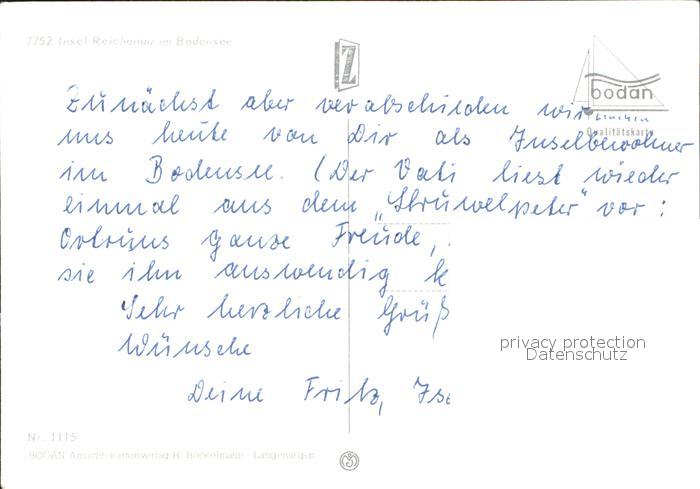 7752 Insel Reichenau im Bodensee
Z
bodan
Qualitätskarte
Zunächst aber verabschieden wir
uns heute von Dir als Inselbewohner
im Bodensee. (Der Vati liest wieder
einmal aus dem „Struwelpeter" vor:
Ortruns ganze Freude,
sie ihn auswendig k
Sehr herzliche Grüß
Wünsche
Deine Fritz, Is
privacy protection
Datenschutz
Nr. 1115
BODAN Ansichtskartenverlag H. Bockelmann - Langenargen